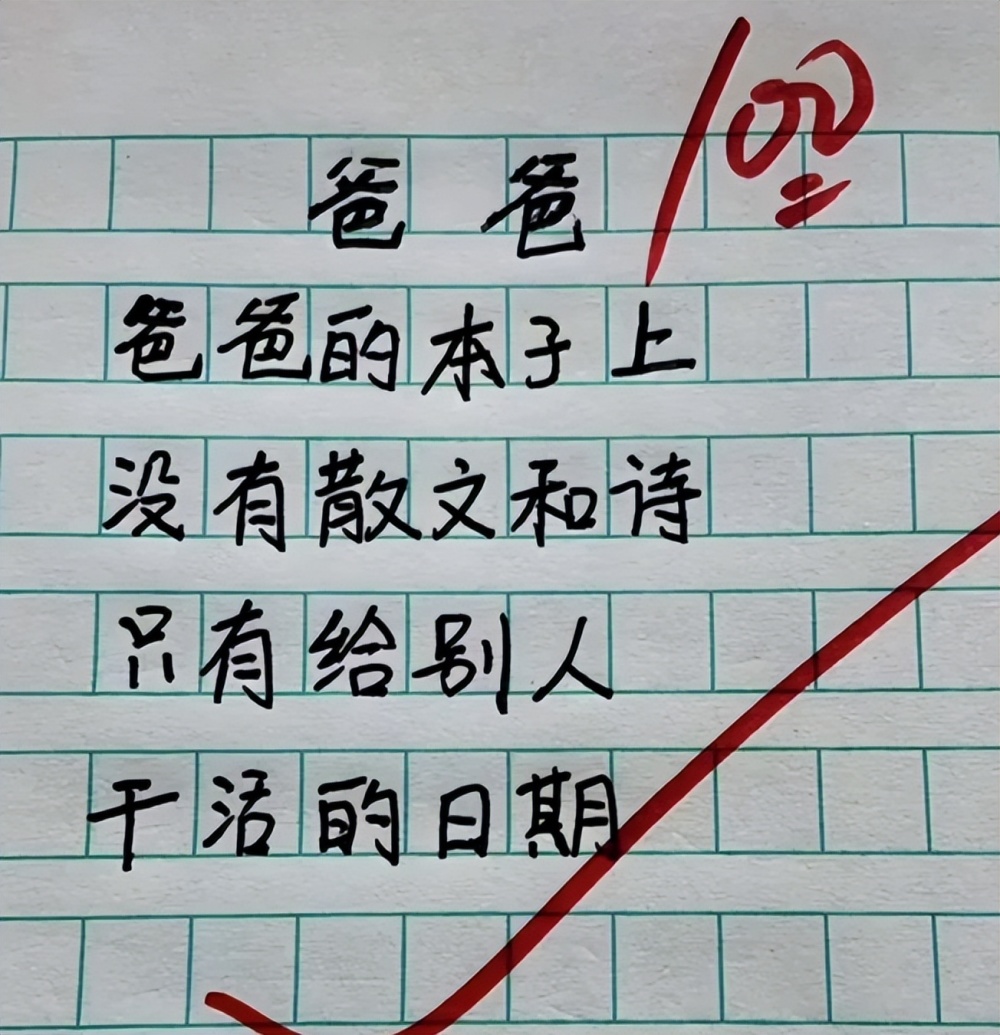 100
爸爸
爸爸的本子上
没有散文和诗
只有给别人
干活的日期